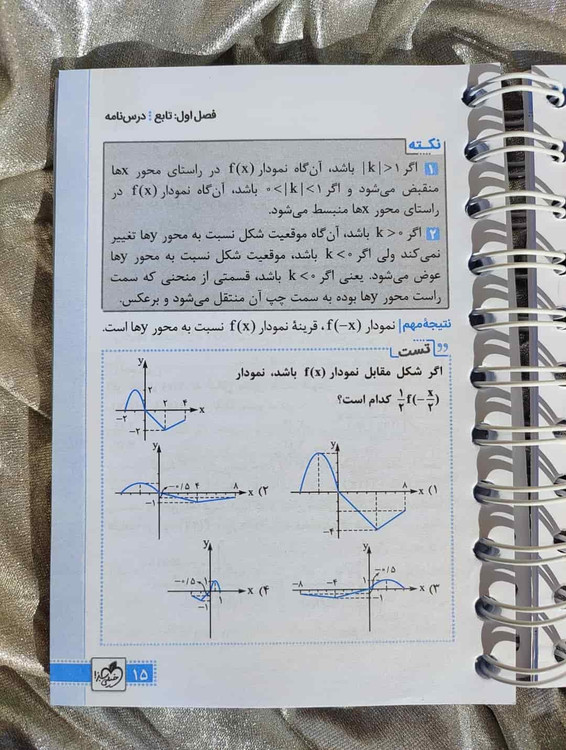 فصل اول: تابع درس‌نامه
نکته
۱ اگر |k|>۱ باشد، آن‌گاه نمودار f(x) در راستای محور xها
منقبض می‌شود و اگر ۰<|k|<۱ باشد، آن‌گاه نمودار f(x) در
راستای محور xها منبسط می‌شود.
۲ اگر k>۰ باشد، آن‌گاه موقعیت شکل نسبت به محور yها تغییر
نمی‌کند ولی اگر k<۰ باشد، موقعیت شکل نسبت به محور yها
عوض می‌شود. یعنی اگر k<۰ باشد، قسمتی از منحنی که سمت
راست محور yها بوده به سمت چپ آن منتقل می‌شود و برعکس.
نتیجۀ مهم| نمودار f(−x)، قرینۀ نمودار f(x) نسبت به محور yها است.
تست
اگر شکل مقابل نمودار f(x) باشد، نمودار
۱/۲ f(−x/۲) کدام است؟
y
۲
−۲ ۲ ۴ x
−۲
۱)
y
۸ x
−۴
۲)
y
−۰/۵ ۴ ۸ x
−۱
۳)
y
−۸ −۴ ۱ −۰/۵ x
−۱
۴)
y
−۰/۵ ۱ x
۱
−۱
۱۵